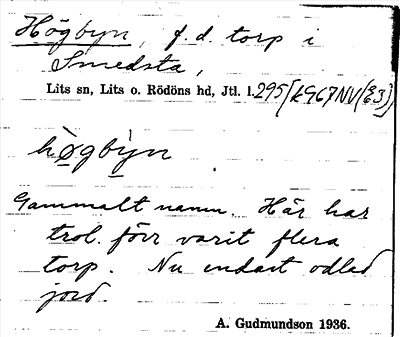 Högbyn, f.d. torp i
Smedsta,
Lits sn, Lits o. Rödöns hd, Jtl. l. 295
hø̀gby�ǹ
Gammalt namn. Här har
trol. förr varit flera
torp. Nu endast odlad
jord.
A. Gudmundson 1936.